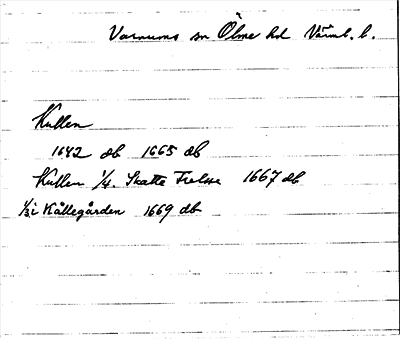 Varnums sn Ölme hd Värml. l.
Kullen
1642 db 1665 db
Kullen 1/4. Skatte Frelse 1667 db
1/3 i Källegården 1669 db